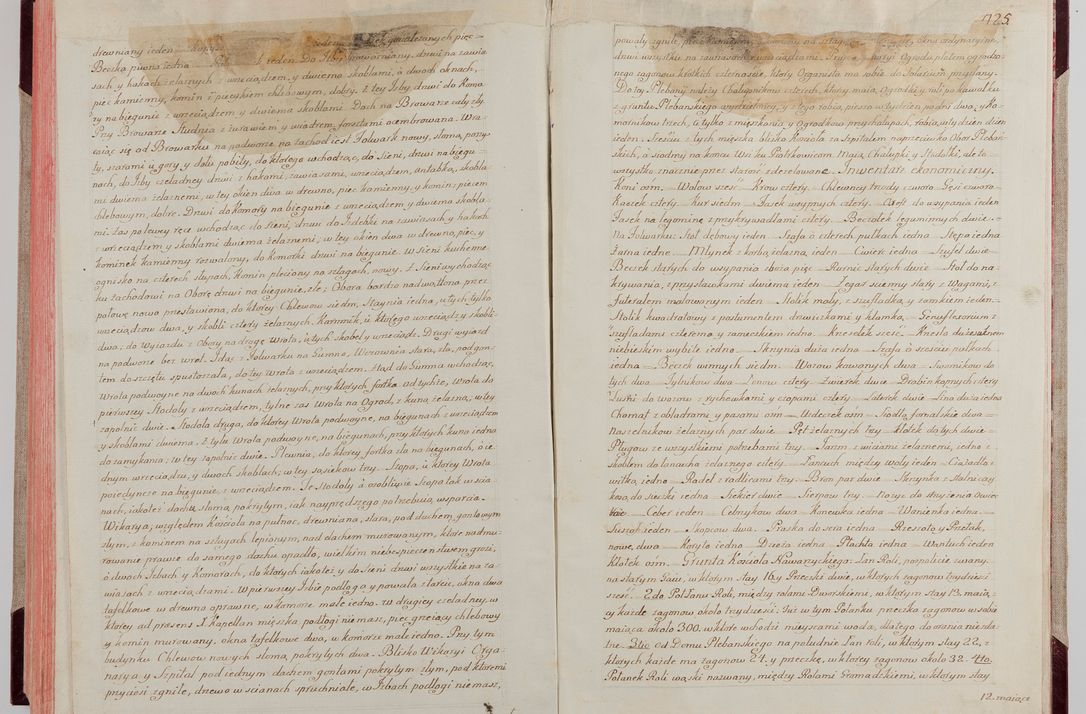 drewniany ieden
Beczka piwna iedna ieden Do Izby browarnianey drzwi na zawia
sach, y hakach żelaznych z wrzeciądzem, y dwiema skoblami, o dwoch oknach,
piec kamienny, komin z piecykiem chlebowym, dobry. Z tey Izby drzwi do Komo
ry na biegunie z wrzeciądzem y dwiema skoblami Dach na Browarze cały zły.
Przy Browarze Studnia z żurawiem y wiadrem forsztami ocembrowana. Wra
caiąc się od Browarku na podworze na zachod iest Folwark nowy, słomą poszy
ty, szarami u gory, y dołu pobity, do ktorego wchodząc, do Sieni, drzwi na biegu
nach, do Izby czeladney drzwi z hakami, zawiasami, wrzeciądzem, antabką, skobla
mi dwiema żelaznemi, w tey okien dwa w drewno, piec kamienny y komin z piecem
chlebowym, dobre. Drzwi do Komory na biegunie z wrzeciądzem y dwiema skobla
mi. Zas po lewey ręce wchodząc do Sieni, drzwi do Izdebki na zawiasach y hakach
z wrzeciądzem y skoblami dwiema żelaznemi, w tey okien dwa w drewno, piec, y
kominek kamienny rozwalony, do komorki drzwi na biegunie. W Sieni kuchenne
ognisko na czterech słupach, komin pleciony na sztagach, nowy. Z Sieni wychodząc
ku zachodowi na Oborę drzwi na biegunie, złe; Obora bardzo nadwątlona przez
połowę nowo przestawiona, do ktorey Chlewow siedm, Staynia iedna, u tych tylko
wrzeciądzow dwa, y skobli cztery żelaznych. Karmnik, u ktorego wrzeciądz y skobli
dwa; do Wyiazdu z Obory na drogę Wrota, u tych skobel y wrzeciądz. Drugi wyiazd
na podworze bez wrot. Idąc z Folwarku na Gumno, Wozownia stara, zła, pod gon
tem do szczętu spustoszała, do tey Wrota z wrzeciądzem. Ztąd do Gumna wchodząc,
Wrota podwoyne na dwoch kunach żelaznych, przy ktorych fortka od tychże, Wrota do
pierwszey Stodoły z wrzeciądzem, tylne zas Wrota na Ogrod, z kuną żelazną; w tey
zapolnic dwie. Stodoła druga, do ktorey Wrota podwoyne, na biegunach z wrzeciądzem
y skoblami dwiema. Z tyłu Wrota podwoyne, na biegunach, przy ktorych kuna iedna
do zamykania; w tey zapolnic dwie. Plewnia, do ktorey fortka zła na biegunach, o ie
dnym wrzeciądzu, y dwoch skoblach, w tey sąsiekow trzy. Szopa, u ktorey Wrota
poiedyncze na biegunie, z wrzeciądzem. Te Stodoły a osobliwie Szopa tak w scia
nach, iako też dachu słomą pokrytym, iak nayprędszego potrzebuią wsparcia.
Wikarya; względem Kościoła na pułnoc, drewniana, stara, pod dachem gontowym
złym, z kominem na sztagach lepionym, nad dachem murowanym, ktore nadmu
rowanie prawie do samego dachu opadło, wielkim niebespieczenstwem grozi,
o dwoch Izbach y Komorach, do ktorych iako też y do Sieni drzwi wszystkie na za
wiasach z wrzeciądzami. W pierwszey Izbie podłoga y powała z tarcic, okna dwa
tafelkowe w drewno oprawne, w komorze małe iedno. W drugiey czeladney, w
ktorey ad præsens X. Kapellan mięszka podłogi nie masz, piec grzeiący chlebowy
y komin murowany, okna tafelkowe dwa, w komorze małe iedno. Przy tym
budynku Chlewow nowych słomą pokrytych dwa. Blisko Wikaryi Orga
narya y Szpital pod iednym dachem gontami pokrytym złym, pod ktoremi
przyciesi zgniłe, drzewo w scianach spruchniałe, w Izbach podłogi nie masz,
725
powały zgniłe, piec kamienny, okna ordynaryine
drzwi wszystkie na zawiasach z wrzeciądzami. Przy Ogrodu płatem ogrodo
nego zagonow krotkich czternascie, ktory Organista ma sobie do Salarium przydany.
Do tey Plebanij należy Chałupnikow czterech, ktorzy maią Ogrodki, y roli po kawałku
z gruntu Plebańskiego wydzieloney, y z tego robią, pieszo w tydzien po dni dwa; y Ko
mornikow trzech, ci tylko z mięszkania, y Ogrodkow przy chałupach, robią w tydzien dzien
ieden. Sześciu z tych mięszka blisko Kościoła za Szpitalem naprzeciwko Obor Plebań
skich, a siodmy na koncu Wsi ku Piotrkowicom. Maią Chałupki, y Stodołki, ale to
wszystko znacznie przez starość zdezelowane. Inwentarz ekonomiczny.
Koni osm. Wołow szesc. Krow cztery. Chlewney trzody czworo. Gęsi czworo.
Kaczek cztery. Kur siedm. Fasek wsypnych cztery. Czoft do wsypania ieden
Fasek na leguminę z przykrywadłami cztery. Beczołek leguminnych dwie.
Na Folwarku: Stoł dębowy ieden. Szafa o czterech pułkach iedna. Stępa iedna
Żarna iedne. Młynek z korbą żelazną, ieden. Cwierć iedna. Szufel dwie
Beczek starych do wsypania zboża pięc. Kusnic starych dwie. Stoł do na
krywania, z przystawkami dwiema ieden. Zegar scienny stary z Wagami, z
futerałem malowanym ieden. Stolik mały, z szufladką, y zamkiem ieden.
Stolik kwadratowy z postumentem drzwiczkami y klamką. Genuflexorium z
szufladami czterema y zameczkiem iedno. Krzesełek szesć. Krzesło duże suknem
niebieskim wybite iedno. Skrzynia duża iedna. Szafa o szesciu pułkach
iedna. Beczek winnych siedm. Wozow kowanych dwa. Swornikow do
tych dwa. Tylnikow dwa. Lonow cztery. Zwierzek dwie. Drabin kopnych cztery
Lusni do wozow z rychewkami y czopami cztery. Laterek dwie. Lina duża iedna
Chomąt z obladrami y pasami osm. Uzdeczek osm. Siodła fornalskie dwa.
Naszelnikow żelaznych par dwie. Pęt żelaznych trzy. Klotek do tych dwie.
Pługow ze wszystkiemi potrzebami trzy. Jarzm z wiciami żelaznemi, iedno z
skoblem do łancucha żelaznego cztery. Łancuch między woły ieden. Ciązadło z
witką iedno. Radeł z radlicami trzy. Bron par dwie. Skrzynka z stolnicą y
kosą do sieczki iedna. Siekier dwie. Sierpow trzy. Nożyc do strzyżenia Owiec
troie. Ceber ieden. Cebrzykow dwa. Konewka iedna. Wanienka iedna.
Szuszof ieden. Skopcow dwa. Praska do sera iedna. Rzeszoto y Przetak,
nowe, dwa. Koryto iedno. Dzieża iedna. Płachta iedna. Wantuch ieden
Kłotek osm. Grunta Kościoła Nawarzyckiego: Łan Roli, pospolicie zwany
na starym Stawie, w ktorym stay 16. y Przeczki dwie, w ktorych zagonow trzydziesci
szesc. 2do Poł Łanu Roli, między rolami Dworskiemi, w ktorym stay 13. maią
cy każde zagonow około trzydziesci. Już w tym Połanku przeczka zagonow w sobie
maiąca około 300. w ktore wchodzi mieyscami woda, dlatego do orania niezda
tne. 3tio od Domu Plebańskiego na południe Łan roli, w ktorym stay 22, z
ktorych każde ma zagonow 24. y przeczkę, w ktorey zagonow około 32. 4to.
Połanek Roli wązki nazwany, między Rolami Gromadzkiemi, w ktorym stay
12. maiące